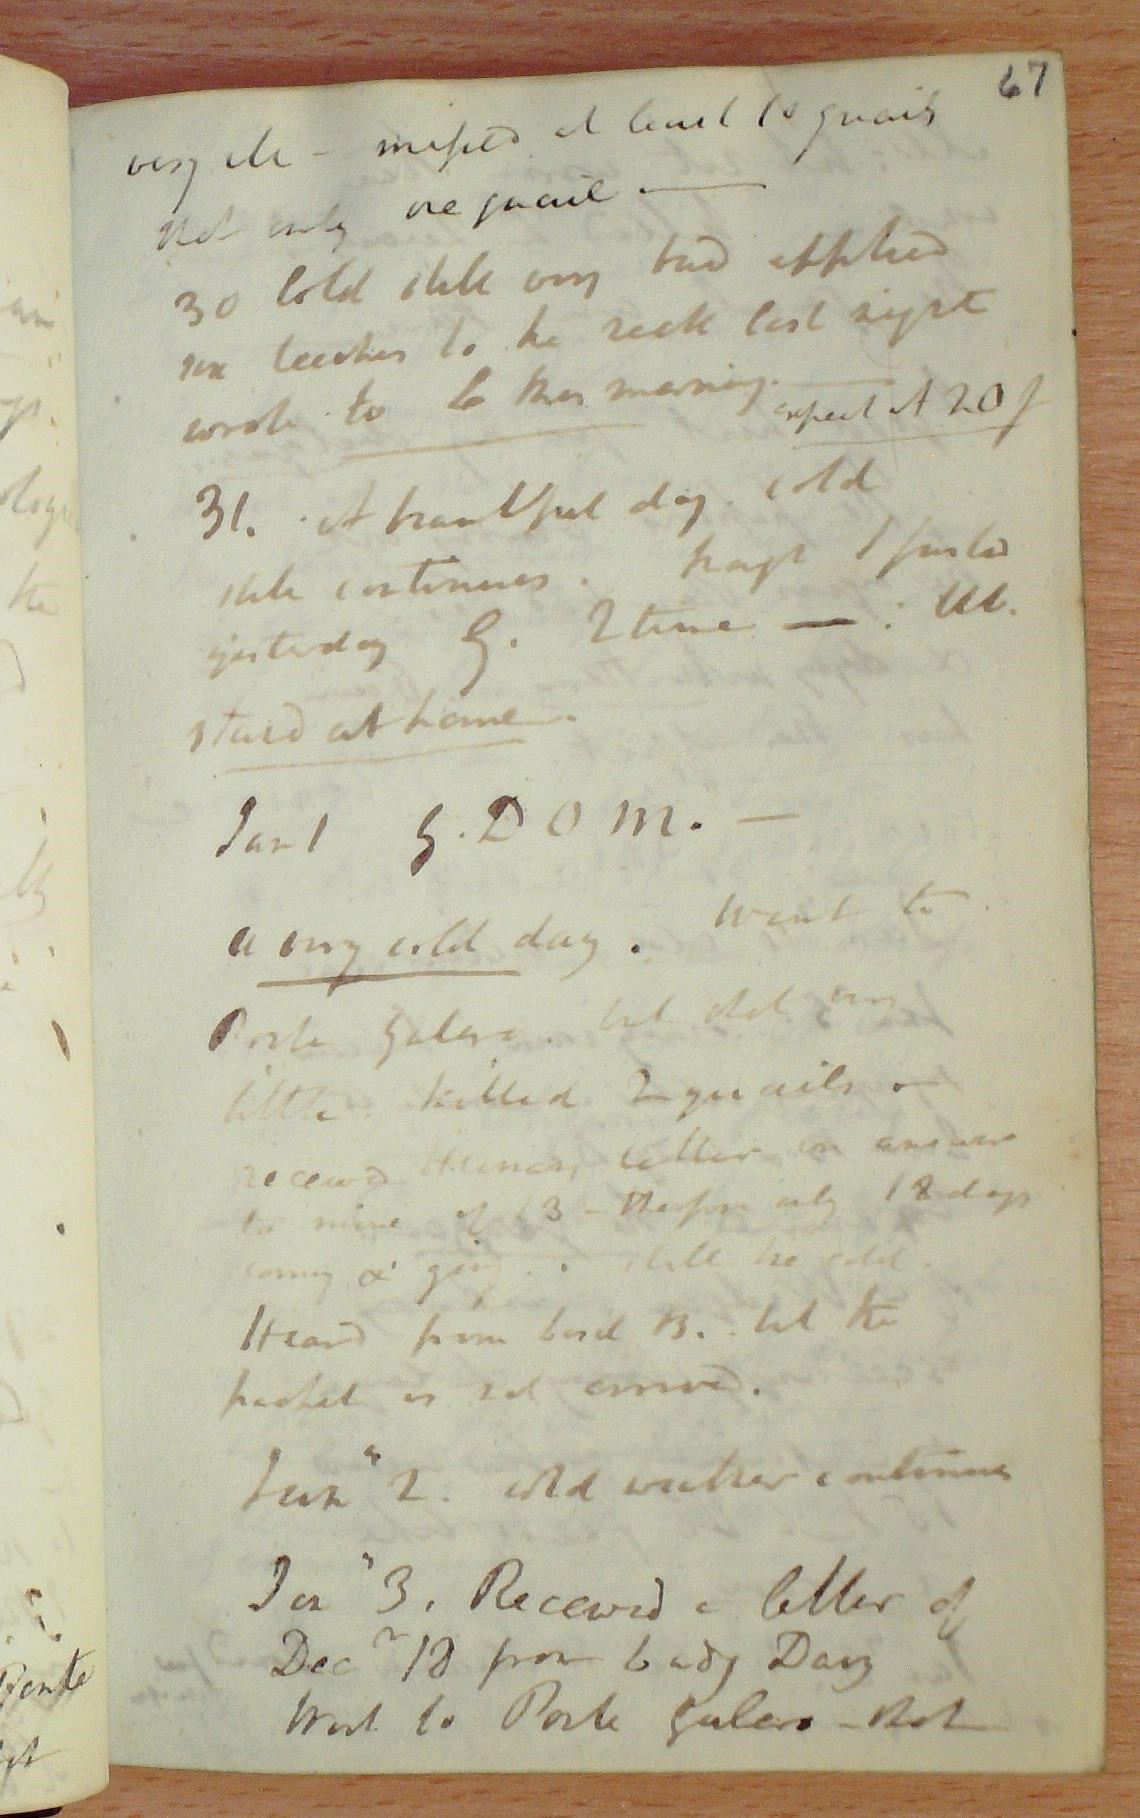 67
very ill - missed at least 10 quails
shot only one quail —
30 Cold still very bad applied
six leeches to the neck last night
wrote to L this morning. expect at 20 of
31. A beautiful day. cold
still continues. though I fasted
yesterday G. 2 time — :
staid at home.
Jan 1 G. D O M. —
a very cold day. Went to
Porte Galera. but shot very
little. killed 2 quails
received letter in answer
to mine of 13 - therefore only 18 days
coming & going. still the cold.
Heard from Lord B. but the
packet is not arrived.
Jany 2. cold weather continues
Jan 3. Received a letter of
Decr 18 from Lady Davy
Went to Porte Galera - shot
Ponte